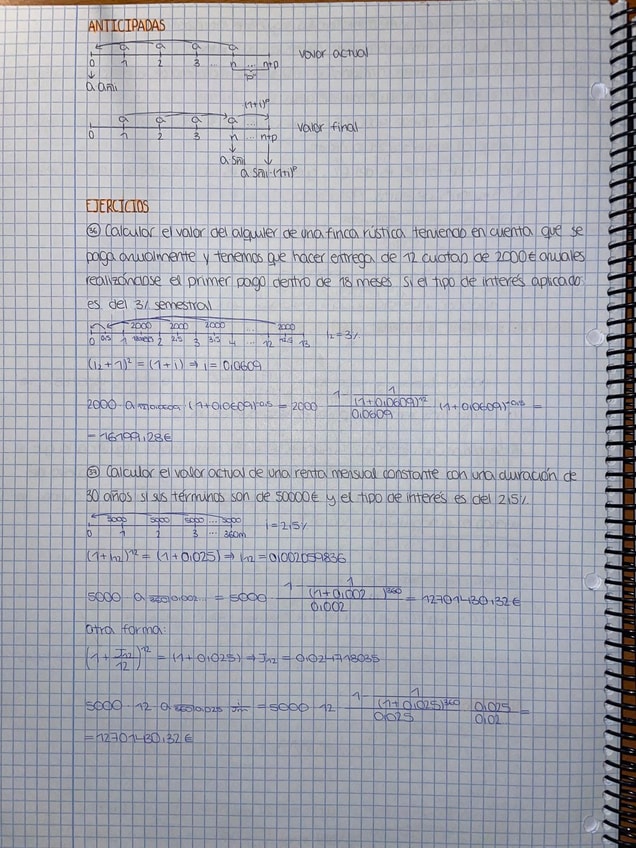 ANTICIPADAS
a a a a
0 1 2 3 ... n ... n+p valor actual
"p"
a an̄|i
(1+i)ᵖ
a a a a ...
0 1 2 3 n n+p valor final
a sn̄|i
a sn̄|i·(1+i)ᵖ
EJERCICIOS
Calcular el valor del alquiler de una finca rústica teniendo en cuenta que se
paga anualmente y tenemos que hacer entrega de 12 cuotas de 2000€ anuales
realizándose el primer pago dentro de 18 meses si el tipo de interés aplicado
es del 3% semestral
2000 2000 2000 ... 2000
0 0'5 1 2 2'5 3 3'5 4 ... 12 12'5 13 i₂=3%
(i₂+1)² = (1+i) ⇒ i = 0,0609
2000 · a (1+0,0609)^-0,5 = 2000 · (1 - 1/(1+0,0609)^12)/0,0609 · (1+0,0609)^-0,5 =
= 16199,28€
Calcular el valor actual de una renta mensual constante con una duración de
30 años si sus términos son de 50000€ y el tipo de interés es del 2,5%
5000 5000 5000 ... 5000
0 1 2 3 ... 360m i=2,5%
(1+i₁₂)¹² = (1+0,025) ⇒ i₁₂ = 0,002059836
5000 · a 0,002... = 5000 · (1 - 1/(1+0,002...)^360)/0,002 = 12701430,32€
otra forma:
(1+J₁₂/12)¹² = (1+0,025) ⇒ J₁₂ = 0,024718035
5000 · 12 · a 0,025 = 5000 · 12 · (1 - 1/(1+0,025)^360)/0,025 · 0,025/0,02 =
= 12701430,32€